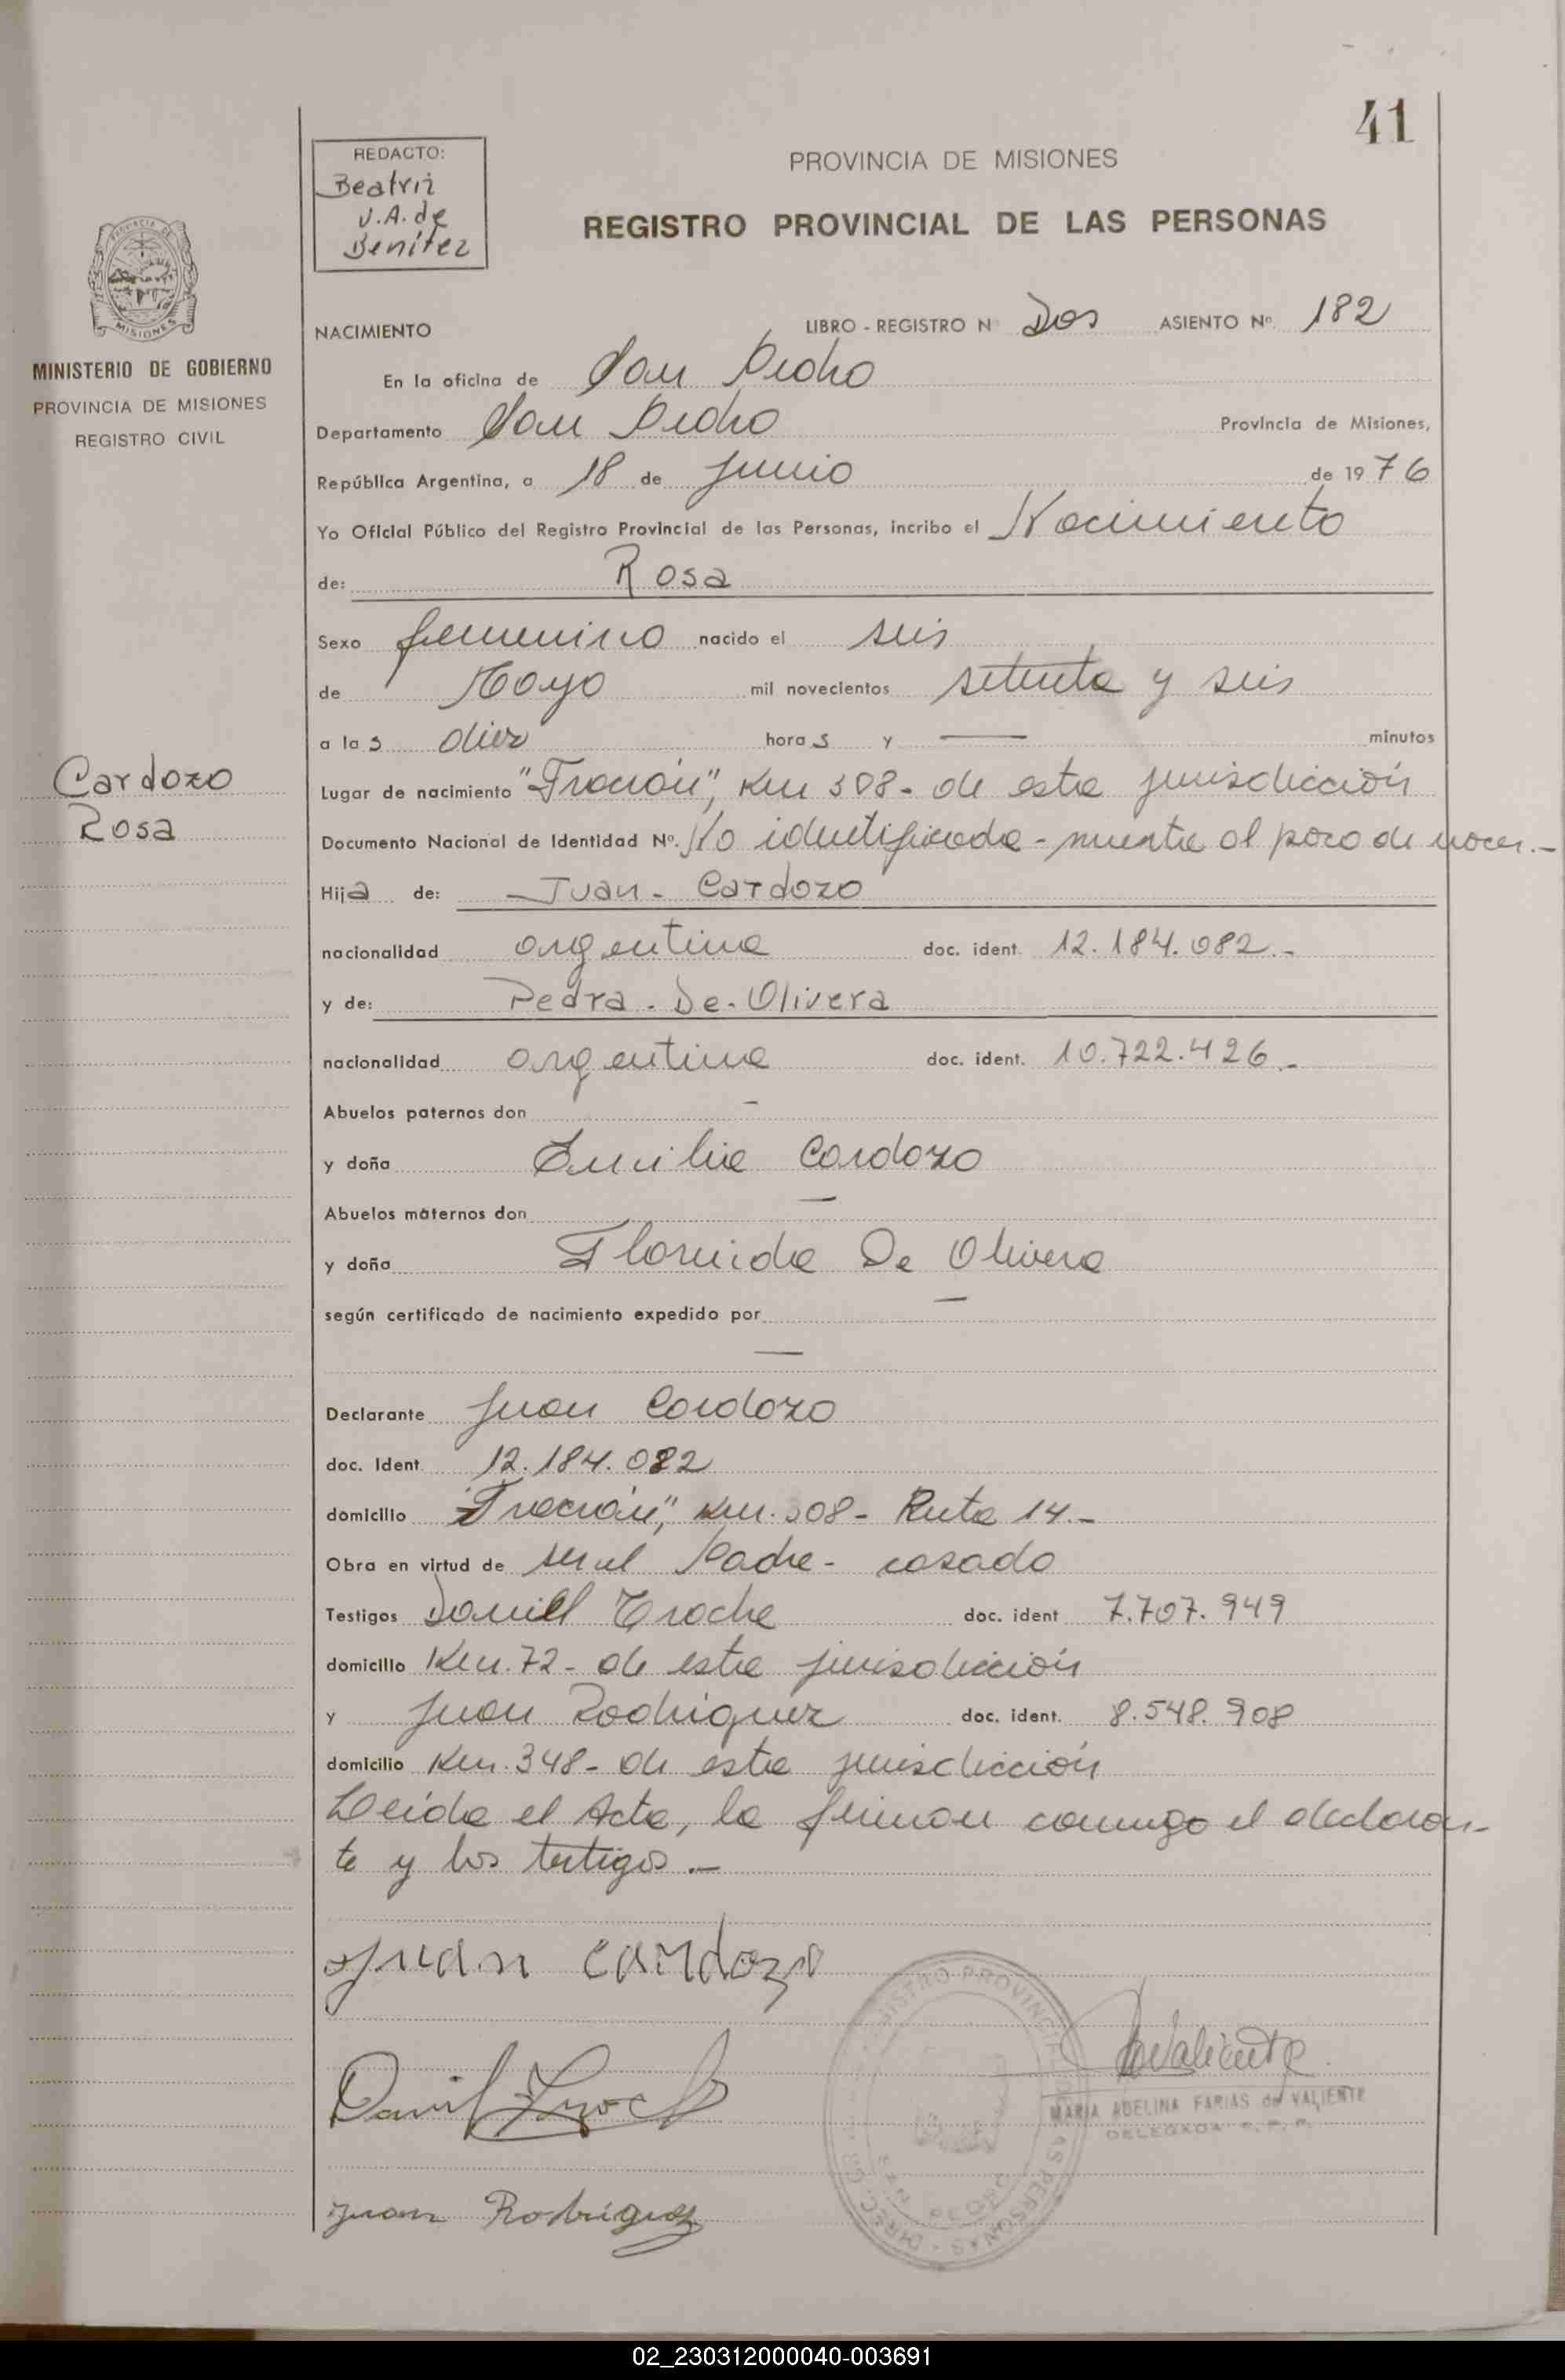 41
REDACTO:
Beatriz
V.A. de
Benítez
PROVINCIA DE MISIONES
REGISTRO PROVINCIAL DE LAS PERSONAS
PROVINCIA DE
MISIONES
MINISTERIO DE GOBIERNO
PROVINCIA DE MISIONES
REGISTRO CIVIL
NACIMIENTO LIBRO - REGISTRO N Dos ASIENTO Nº 182
En la oficina de San Pedro
Departamento San Pedro Provincia de Misiones,
República Argentina, a 18 de Junio de 1976
Yo Oficial Público del Registro Provincial de las Personas, incribo el Nacimiento
de: Rosa
Sexo femenino nacido el seis
de Mayo mil novecientos setenta y seis
a las diez horas y — minutos
Cardozo
Rosa
Lugar de nacimiento "Fracrán", Km 308- de esta jurisdicción
Documento Nacional de Identidad Nº. No identificada - muerta al poco de nacer.-
Hija de: Juan - Cardozo
nacionalidad argentina doc. ident. 12.184.082.-
y de: Pedra - De - Olivera
nacionalidad argentina doc. ident. 10.722.426.-
Abuelos paternos don -
y doña Emilia Cardozo
Abuelos maternos don —
y doña Florcida De Olivera
según certificado de nacimiento expedido por —
—
Declarante Juan Cardozo
doc. Ident 12.184.082
domicilio "Fracrán", Km. 308- Ruta 14.-
Obra en virtud de ser el Padre - casado
Testigos Daniel Troche doc. ident 7.707.949
domicilio Km. 72- de esta jurisdicción
y Juan Rodriguez doc. ident. 8.548.908
domicilio Km. 348- de esta jurisdicción
Leída el Acta, la firman conmigo el declaran-
te y los testigos.-
Juan Cardozo
Daniel Troche
Valiente
MARIA ADELINA FARIAS de VALIENTE
DELEGADA R. P. P.
Juan Rodriguez
SAN PEDRO
02_230312000040-003691